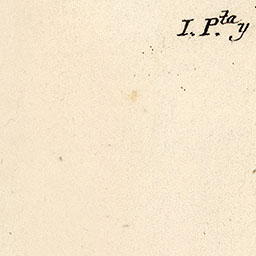 I. P.ta y